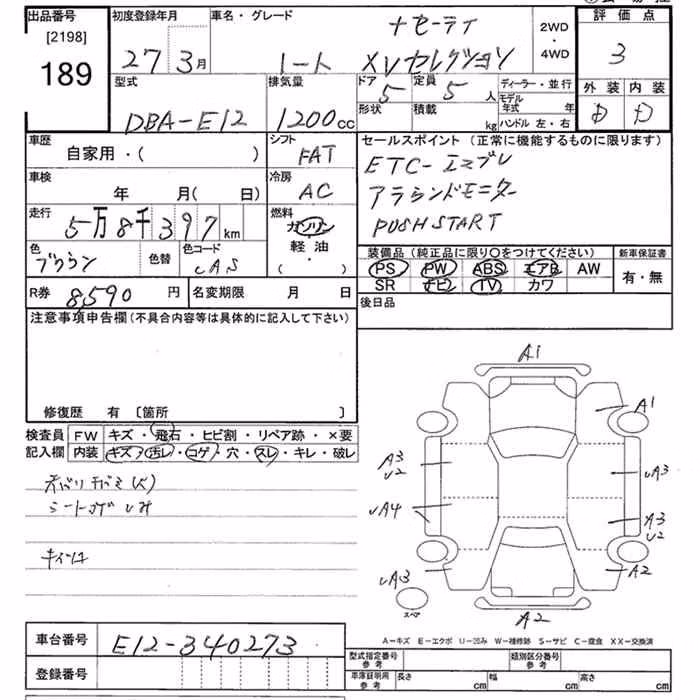 出品番号 初度登録年月 車名・グレード 評価点
[2198] 2WD・4WD
189
27 3月 ノート XVセレクション 3
型式 排気量 ドア 定員 ディーラー・並行 外装 内装
5 5人 モデル年式 年
DBA-E12 1200cc 形状 積載 kg ハンドル 左・右 D D
車歴 シフト セールスポイント（正常に機能するものに限ります）
自家用・( ) FAT ETC-エマブレ
車検 冷房 アラウンドモニター
年 月( 日) AC
走行 燃料 PUSH START
5万8千397km ガソリン
軽油
( ・ )
色 色替 色コード 装備品（純正品に限り○をつけてください） 新車保証書
ブラウン CAS PS PW ABS エアB AW 有・無
SR ナビ TV カワ
R券 8590円 名変期限 月 日 後日品
注意事項申告欄（不具合内容等は具体的に記入して下さい）
修復歴 有 〔箇所 〕
検査員 FW キズ・飛石・ヒビ割・リペア跡・×要
記入欄 内装 キズ・汚レ・コゲ・穴・スレ・キレ・破レ
A1
A1
A3
U2
A3
A4
A3
U2
A3
A2
スペア
A2
A-キズ E-エクボ U-凹み W-補修跡 S-サビ C-腐食 XX-交換済
車台番号 E12-340273
登録番号
型式指定番号 参考 類別区分番号 参考
車庫証明用 参考 長さ cm 幅 cm 高さ cm